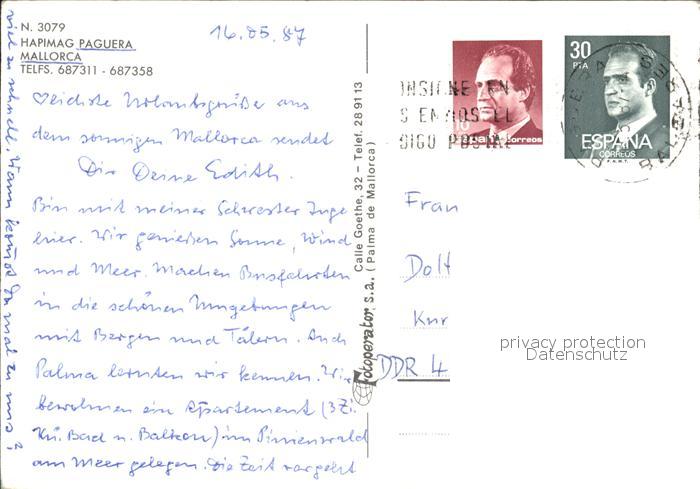 N. 3079
HAPIMAG PAGUERA
MALLORCA
TELFS. 687311 - 687358
16.05.87
♡lichste Urlaubsgrüße aus
dem sonnigen Mallorca sendet
Dir Deine Edith.
Bin mit meiner Schwester Inge
hier. Wir genießen Sonne, Wind
und Meer. Machen Busfahrten
in die schönen Umgebungen
mit Bergen und Tälern. Auch
Palma lernten wir kennen. Wir
bewohnen ein Apartement (3Zi.
Kü. Bad u. Balkon) im Pinienwald
am Meer gelegen. Die Zeit vergeht
viel zu schnell. Wann kommst Du mal zu uns?
Fotoperator, s.a.
Calle Goethe, 32 – Telef. 28 91 13
(Palma de Mallorca)
10
España correos
30
PTA
ESPAÑA
CORREOS
F.N.M.T.
Frau
Dolt
Knr
DDR 4
privacy protection
Datenschutz